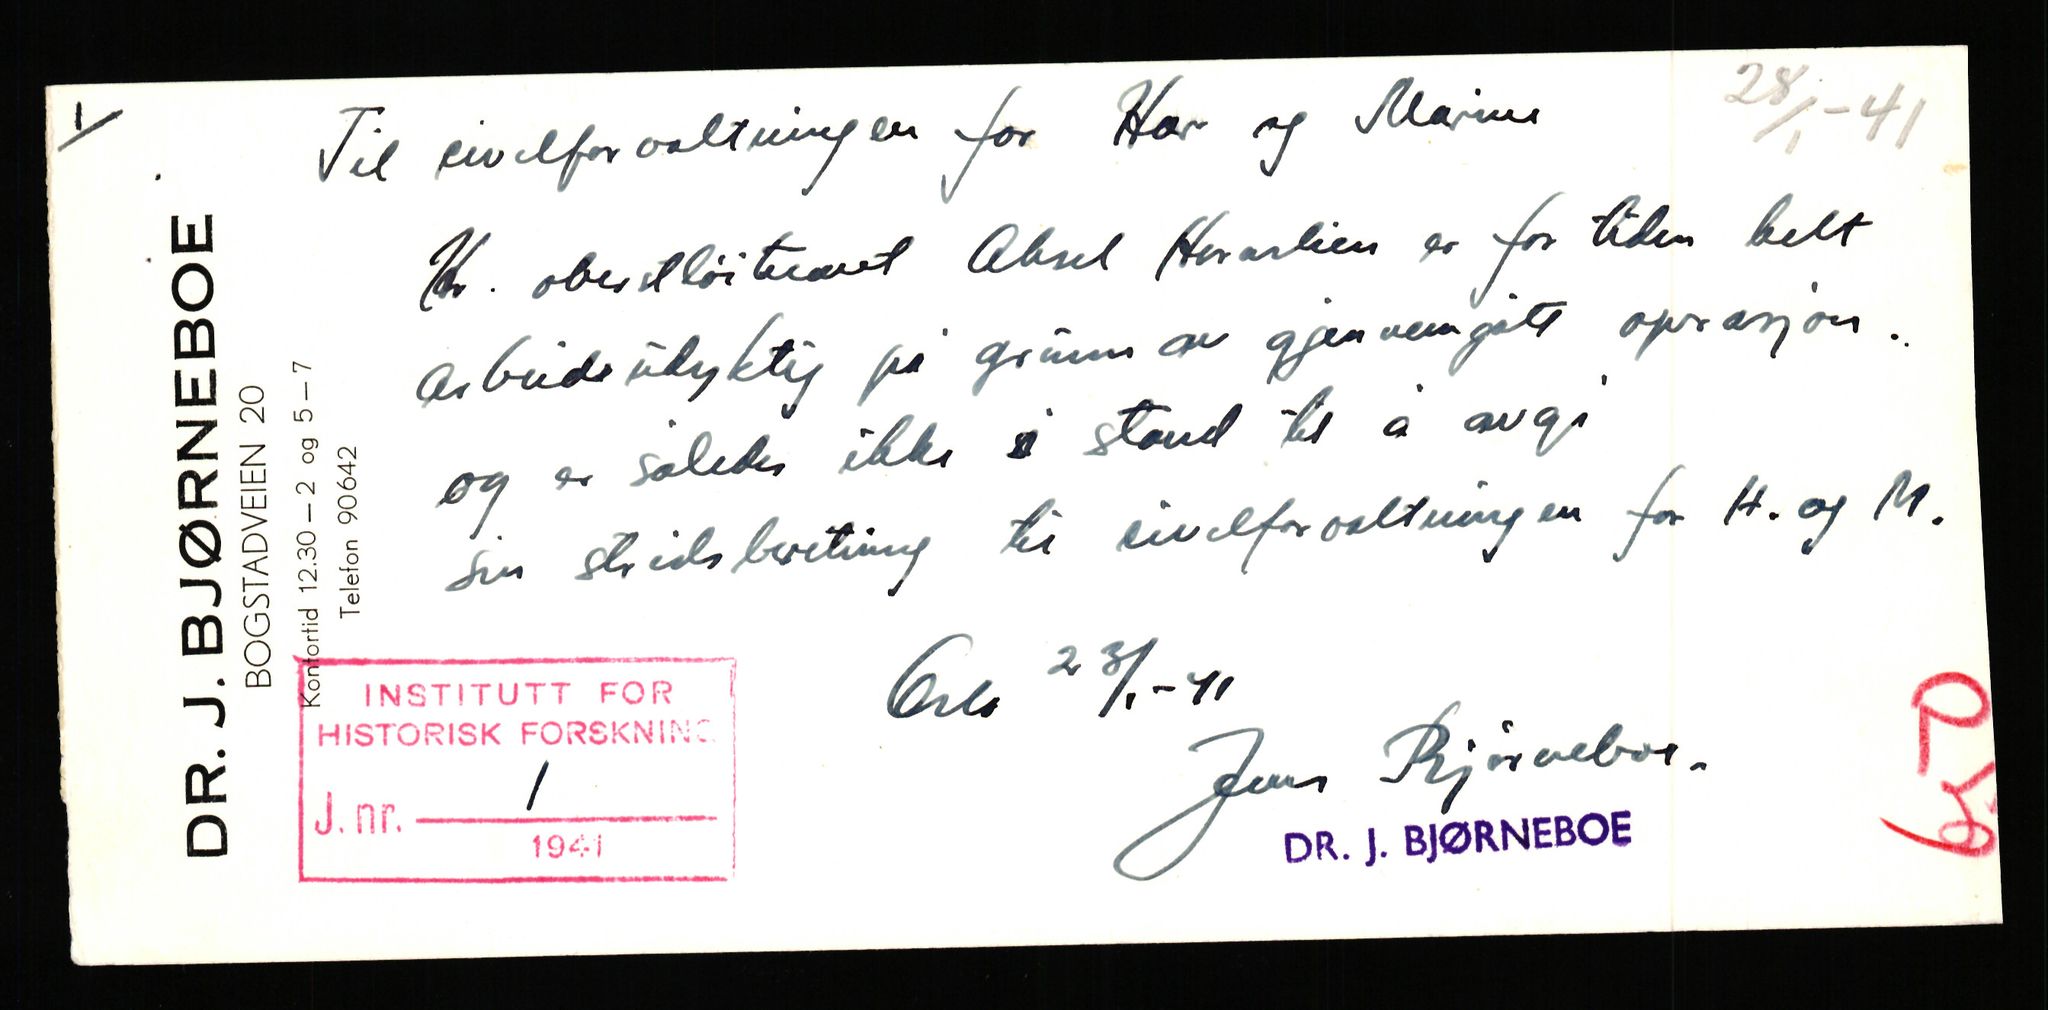 1/
28/1-41
DR. J. BJØRNEBOE
BOGSTADVEIEN 20
Kontortid 12.30–2 og 5–7
Telefon 90642
Til civilforvaltningen for Hær og Marine
Hr. oberstløitnant Aksel er for tiden helt
arbeidsudyktig på grunn av gjennemgått operasjon.
og er således ikke i stand til å avgi
sin stridsberetning til civilforvaltningen for H. og M.
Oslo 23/1-41
Jens Bjørneboe.
DR. J. BJØRNEBOE
INSTITUTT FOR
HISTORISK FORSKNING
J. nr. 1
1941